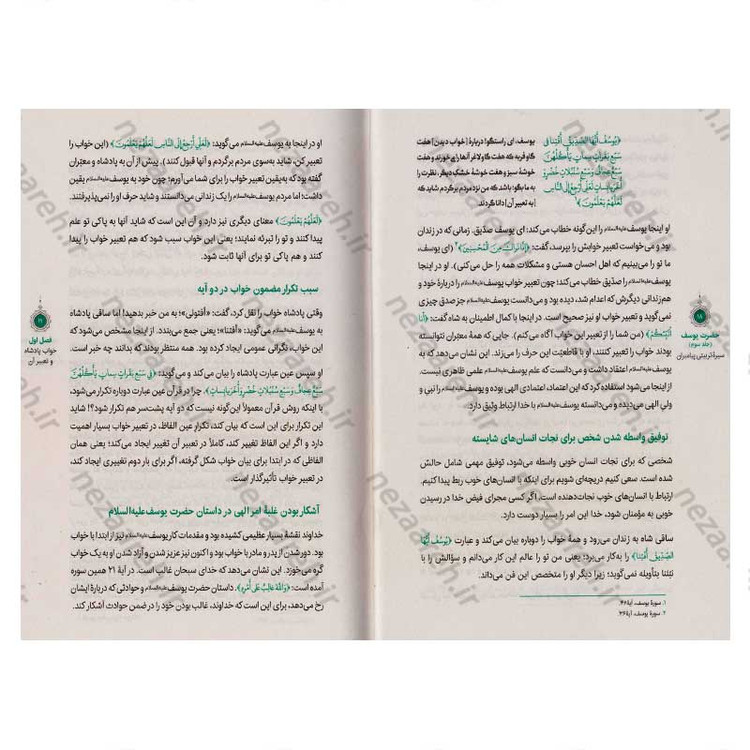 ﴿يُوسُفُ أَيُّهَا الصِّدِّيقُ أَفْتِنَا فِي
سَبْعِ بَقَرَاتٍ سِمَانٍ يَأْكُلُهُنَّ
سَبْعٌ عِجَافٌ وَسَبْعِ سُنْبُلَاتٍ خُضْرٍ وَ
أُخَرَ يَابِسَاتٍ لَعَلِّي أَرْجِعُ إِلَى النَّاسِ
لَعَلَّهُمْ يَعْلَمُونَ﴾۱
یوسف، ای راستگو! دربارهٔ [خواب دیدن] هفت
گاو فربه که هفت گاو لاغر آنها را می‌خورند و هفت
خوشهٔ سبز و هفت خوشهٔ خشک دیگر، نظرت را
به ما بگو؛ باشد که من نزد مردم برگردم شاید که
[به تعبیر آن] دانا گردند.
او اینجا یوسف علیه‌السلام را این‌گونه خطاب می‌کند: ای یوسف صدّیق. زمانی که در زندان
بود و می‌خواست تعبیر خوابش را بپرسد، گفت: ﴿إِنَّا نَرَاكَ مِنَ الْمُحْسِنِينَ﴾۲ (ای یوسف،
ما تو را می‌بینیم که اهل احسان هستی و مشکلات همه را حل می‌کنی). او در اینجا
یوسف علیه‌السلام را صدّیق خطاب می‌کند؛ چون تعبیر خواب یوسف علیه‌السلام را دربارهٔ خود و
هم‌زندانی دیگرش که اعدام شد، دیده بود و می‌دانست یوسف علیه‌السلام جز صدق چیزی
نمی‌گوید و تعبیر خواب او نیز صحیح است. در اینجا با کمال اطمینان به شاه گفت: ﴿أَنَا
أُنَبِّئُكُمْ﴾ (من شما را از تعبیر این خواب آگاه می‌کنم). جایی که همهٔ معبّران نتوانسته
بودند خواب را تعبیر کنند، او با قاطعیّت این حرف را می‌زند. این نشان می‌دهد که به
یوسف علیه‌السلام اعتقاد داشت و می‌دانست که علم یوسف علیه‌السلام علمی ظاهری نیست.
از اینجا می‌شود استفاده کرد که این اعتماد، اعتمادی الهی بوده و یوسف علیه‌السلام را نبی و
ولی الهی می‌دیده و می‌دانسته یوسف علیه‌السلام با خدا ارتباط وثیق دارد.
توفیق واسطه شدن شخص برای نجات انسان‌های شایسته
شخصی که برای نجات انسان خوبی واسطه می‌شود، توفیق مهمی شامل حالش
شده است. سعی کنیم دریچه‌ای شویم برای اینکه با انسان‌های خوب ربط پیدا کنیم.
ارتباط با انسان‌های خوب نجات‌دهنده است. اگر کسی مجرای فیض خدا در رسیدن
خوبی به مؤمنان شود، خدا این امر را بسیار دوست دارد.
ساقی شاه به زندان می‌رود و همهٔ خواب را دوباره بیان می‌کند و عبارت ﴿يُوسُفُ أَيُّهَا
الصِّدِّيقُ أَفْتِنَا﴾ را به‌کار می‌برد؛ یعنی من تو را عالم این کار می‌دانم و سؤالش را با
نبّئنا بتأویله نمی‌گوید؛ زیرا دیگر او را متخصص این فن می‌داند.
۱. سورهٔ یوسف، آیهٔ ۴۶.
۲. سورهٔ یوسف، آیهٔ ۳۶.
۱۸
حضرت یوسف
(جلد سوم)
سیرهٔ تربیتی پیامبران
او در اینجا به یوسف علیه‌السلام می‌گوید: ﴿لَعَلِّي أَرْجِعُ إِلَى النَّاسِ لَعَلَّهُمْ يَعْلَمُونَ﴾ (این خواب را
تعبیر کن، شاید به‌سوی مردم برگردم و آنها قبول کنند). پیش از آن به پادشاه و معبّران
گفته بود که به‌یقین تعبیر خواب را برای شما می‌آورم؛ چون خود به یوسف علیه‌السلام یقین
داشت؛ اما مردم یوسف علیه‌السلام را یک زندانی می‌دانستند و شاید حرف او را نمی‌پذیرفتند.
﴿لَعَلَّهُمْ يَعْلَمُونَ﴾ معنای دیگری نیز دارد و آن این است که شاید آنها به پاکی تو علم
پیدا کنند و تو را تبرئه نمایند؛ یعنی این خواب سبب شود که هم تعبیر خواب را پیدا
کنند و هم پاکی تو برای آنها ثابت شود.
سبب تکرار مضمون خواب در دو آیه
وقتی پادشاه خواب را نقل کرد، گفت: «أفتونی»؛ به من خبر بدهید! اما ساقی پادشاه
به یوسف علیه‌السلام می‌گوید: «أفتنا»؛ یعنی جمع می‌بندد. از اینجا مشخص می‌شود که
این خواب، نگرانی عمومی ایجاد کرده بود. همه منتظر بودند که بدانند چه خبر است.
او سپس عین عبارت پادشاه را بیان می‌کند و می‌گوید: ﴿فِي سَبْعِ بَقَرَاتٍ سِمَانٍ يَأْكُلُهُنَّ
سَبْعٌ عِجَافٌ وَسَبْعِ سُنْبُلَاتٍ خُضْرٍ وَأُخَرَ يَابِسَاتٍ﴾. چرا در قرآن عین عبارت دوباره تکرار می‌شود،
با اینکه روش قرآن معمولاً این‌گونه نیست که دو آیه پشت‌سر هم تکرار شود؟! شاید
این تکرار برای این است که بیان کند، تکرار عین الفاظ، در تعبیر خواب بسیار اهمیت
دارد و اگر این الفاظ تغییر کند، کاملاً در تعبیر آن تغییر ایجاد می‌کند؛ یعنی همان
الفاظی که در ابتدا برای بیان خواب شکل گرفته، اگر برای بار دوم تغییری ایجاد کند،
در تعبیر خواب تأثیرگذار است.
آشکار بودن غلبهٔ امر الهی در داستان حضرت یوسف علیه‌السلام
خداوند نقشهٔ بسیار عظیمی کشیده بود و مقدمات کار یوسف علیه‌السلام نیز از ابتدا با خواب
بود. دور شدن از پدر و مادر با خواب بود و اکنون نیز عزیز شدن و آزاد شدن او به یک خواب
گره می‌خورد. این نشان می‌دهد که خدای سبحان غالب است. در آیهٔ ۲۱ همین سوره
آمده است: ﴿وَاللَّهُ غَالِبٌ عَلَى أَمْرِهِ﴾. داستان حضرت یوسف علیه‌السلام و حوادثی که دربارهٔ ایشان
رخ می‌دهد، برای این است که خداوند، غالب بودن خود را در ضمن حوادث آشکار کند.
۱۹
فصل اول
خواب پادشاه
و تعبیر آن
nezaareh.ir